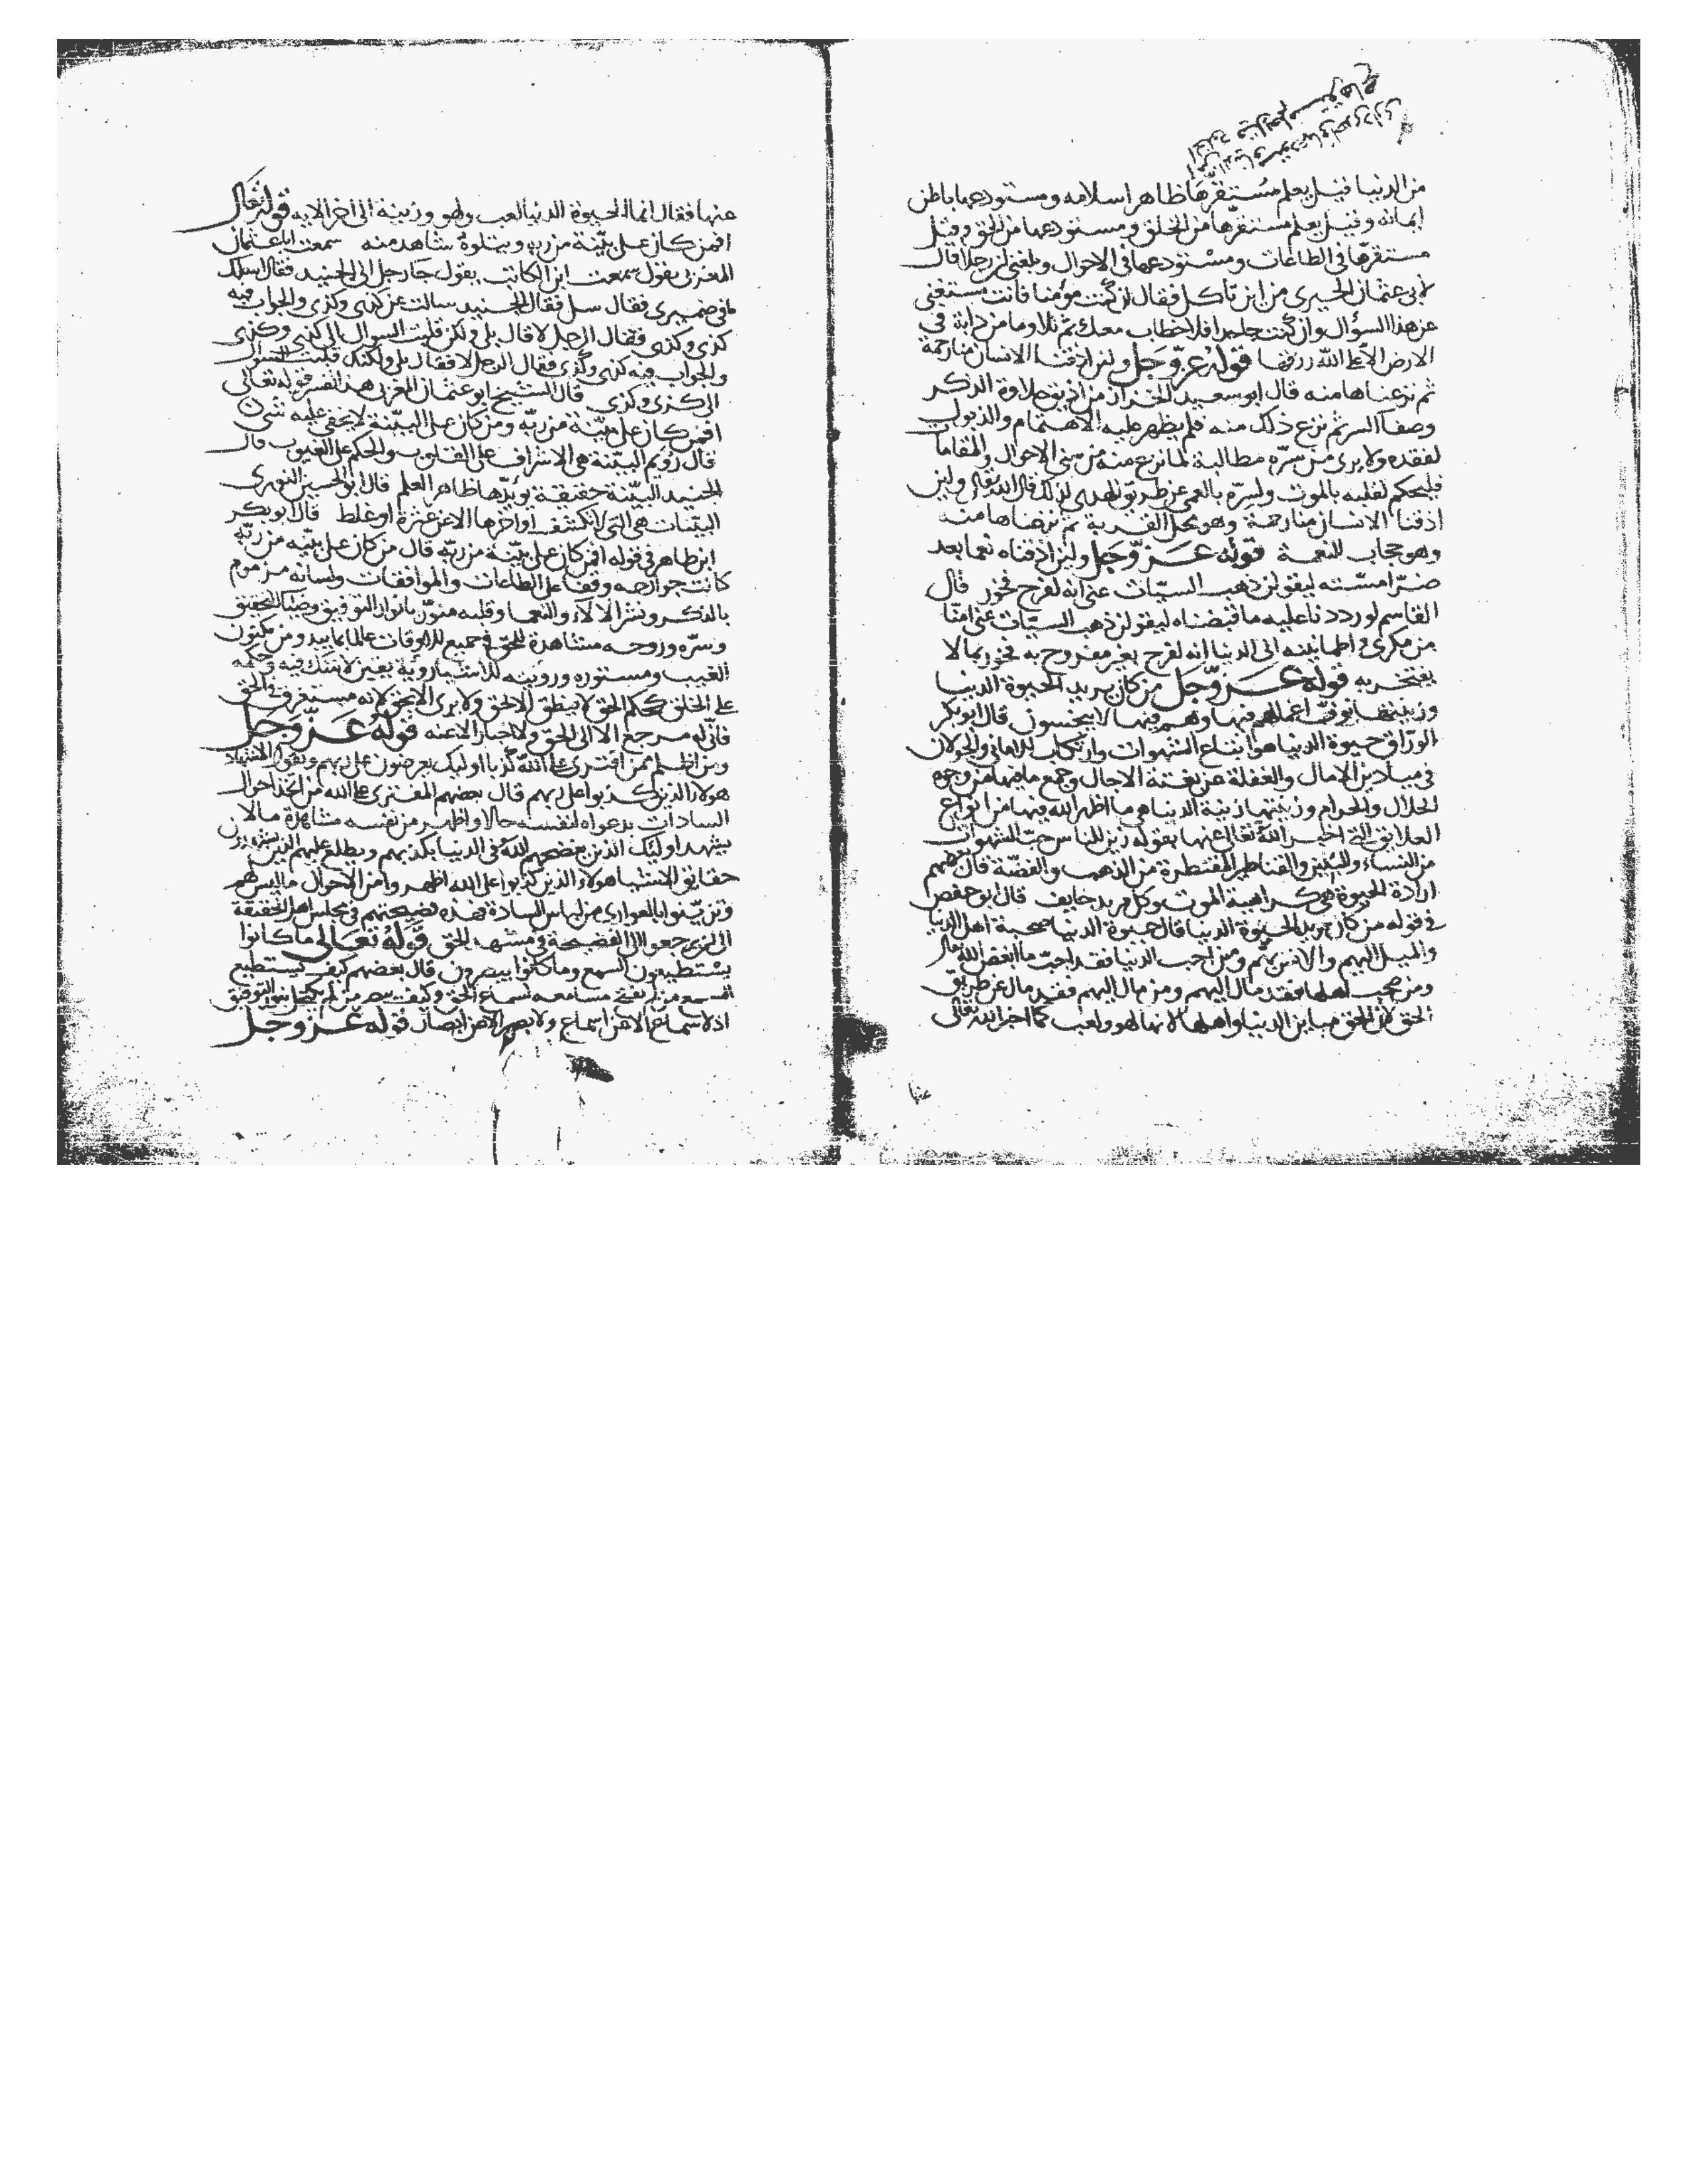 من الدنيا قيل يعلم مستقرها ظاهر اسلامه ومستودعها باطن
ايمانه وقيل يعلم مستقرها من الخلق ومستودعها من الحق وقيل
مستقرها في الطاعات ومستودعها في الاحوال وبلغني ان رجلا قال
لابي عثمان الحيري من اين تاكل فقال ان كنت مؤمنا فانت مستغني
عن هذا السؤال وان كنت فلا خطاب معك ثم تلا وما من دابة في
الارض الا على الله رزقها قوله عز وجل ولئن اذقنا الانسان منا رحمة
ثم نزعناها منه قال ابو سعيد الخراز من اذيق حلاوة الذكر
وصفا السر ثم نزع ذلك منه فلم يظهر عليه الاهتمام والذبول
لفقده ولا يرى من سره مطالبة لما نزع منه من سني الاحوال والمقامات
فليحكم لقلبه بالموت ولسره بالعمى عن طريق الهدى لذلك قال الله تعالى ولين
اذقنا الانسان منا رحمة وهو محل القربة ثم نزعناها منه
وهو حجاب النعمة قوله عز وجل ولين اذقناه نعما بعد
ضرا مسته ليقولن ذهب السيات عني انه لفرح فخور قال
القاسم لو رددنا عليه ما قبضناه ليقولن ذهب السيات عني امنا
من مكرى واطمانينه الى الدنيا انه لفرح بغير مفروح به فخور بما لا
يفتخر به قوله عز وجل من كان يريد الحيوة الدنيا
وزينتها نوف اعمالهم فيها وهم فيها لا يبخسون قال ابو بكر
الوراق حيوة الدنيا هو اتباع الشهوات وارتكاب الاماني والجولان
في ميادين الامال والغفلة عن بغتة الاجال وجمع ما فيها من وجوه
الحلال والحرام وزينتها زينة الدنيا هي ما اظهر الله فيها من انواع
العلايق التي اخبر الله تعالى عنها بقوله زين للناس حب الشهوات
من النساء والبنين والقناطير المقنطرة من الذهب والفضة قال بعضهم
ارادة الحيوة هي كراهية الموت وكل مريد خايف قال ابو حفص
في قوله من كان يريد الحيوة الدنيا قال حيوة الدنيا صحبة اهل الدنيا
والميل اليهم والانس بهم ومن احب الدنيا فقد احب ما ابغض الله تعالى
ومن صحب اهلها فقد مال اليهم ومن مال اليهم فقد مال عن طريق
الحق لان الحق مباين الدنيا واهلها لانها لهو ولعب كما اخبر الله تعالى
عنها فقال انما الحيوة الدنيا لعب ولهو وزينة الى اخر الايه قوله تعالى
افمن كان على بينة من ربه ويتلوه شاهد منه سمعت ابا عثمان
المغربي يقول سمعت ابن الكاتب يقول جا رجل الى الجنيد فقال اسلك
ما في ضميري فقال سل فقال الجنيد سالت عن كذي وكذي والجواب فيه
كذي وكذي فقال الرجل لا قال بلى ولكن قلبت السوال الى كذي وكذي
والجواب فيه كذي وكذي فقال الرجل لا فقال بلى ولكنك قلبت السوال
الى كذي وكذي قال الشيخ ابو عثمان المغربي هذا تفسير قوله تعالى
افمن كان على بينة من ربه ومن كان على البينة لا يخفى عليه شئ
قال رويم البينة هي الاشراف على القلوب والحكم على الغيوب قال
الجنيد البينة حقيقة يؤيدها ظاهر العلم قال ابو الحسين النوري
البينات هي التي لا تكشف اواخرها الا عن عثرة او غلط قال ابو بكر
ابن طاهر في قوله افمن كان على بينة من ربه قال من كان على بينه من ربه
كانت جوارحه وقفا على الطاعات والموافقات ولسانه مزموم
بالذكر ونشر الالاء والنعما وقلبه منور بانوار التوفيق وضيا التحقيق
وسره وروحه مشاهدة للحق في جميع الاوقات عالما بما يبد ومن مكنون
الغيب ومستوره ورويته للاشيا روية يقين لا شك فيه وحكمه
على الخلق كحكم الحق لا ينطق الا بحق ولا يرى الا بحق لانه مستغرق في الحق
فانى له مرجع الا الى الحق ولا اخبار الا عنه قوله عز وجل
ومن اظلم ممن افترى على الله كذبا اوليك يعرضون على ربهم ويقول الاشهاد
هولاء الذين كذبوا على ربهم قال بعضهم المفتري على الله من اتخذ احوال
السادات بدعواه لنفسه حالا واظهر من نفسه مشاهدة ما لا
يشهد اوليك الذين يفضحهم الله في الدنيا بكذبهم ويطلع عليهم الذين يشهدون
حقايق الاشيا هولاء الذين كذبوا على الله اظهروا من الاحوال ما ليس لهم
وتزينوا بالعواري من لباس السادة فهذه فضيحتهم في مجلس اهل الحقيقة
الى ان يرجعوا الى الفضيحة في مشهد الحق قوله تعالى ما كانوا
يستطيعون السمع وما كانوا يبصرون قال بعضهم كيف يستطيع
السمع من لم يفتح مسامعه لسماع الحق وكيف يبصر من لم يكتحل بنور التوفيق
اذ لا سماع الا عن اسماع ولا بصر الا عن ابصار قوله عز وجل